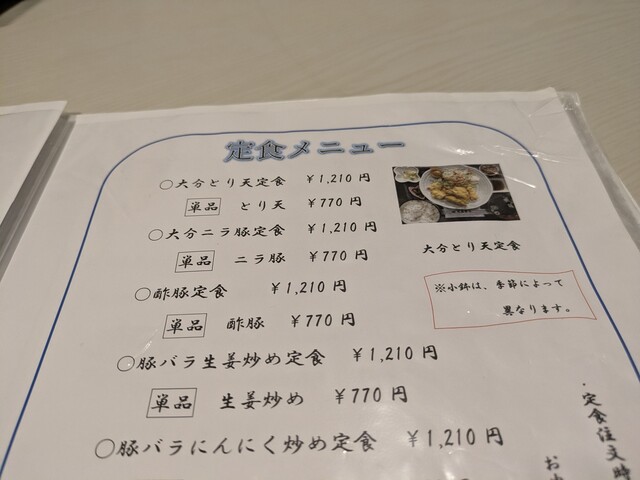 定食メニュー
○大分とり天定食 ￥1,210 円
単品 とり天 ￥770 円
○大分ニラ豚定食 ￥1,210 円
単品 ニラ豚 ￥770 円
○酢豚定食 ￥1,210 円
単品 酢豚 ￥770 円
○豚バラ生姜炒め定食 ￥1,210 円
単品 生姜炒め ￥770 円
○豚バラにんにく炒め定食 ￥1,210 円
大分とり天定食
※小鉢は、季節によって
異なります。
・定食注文時